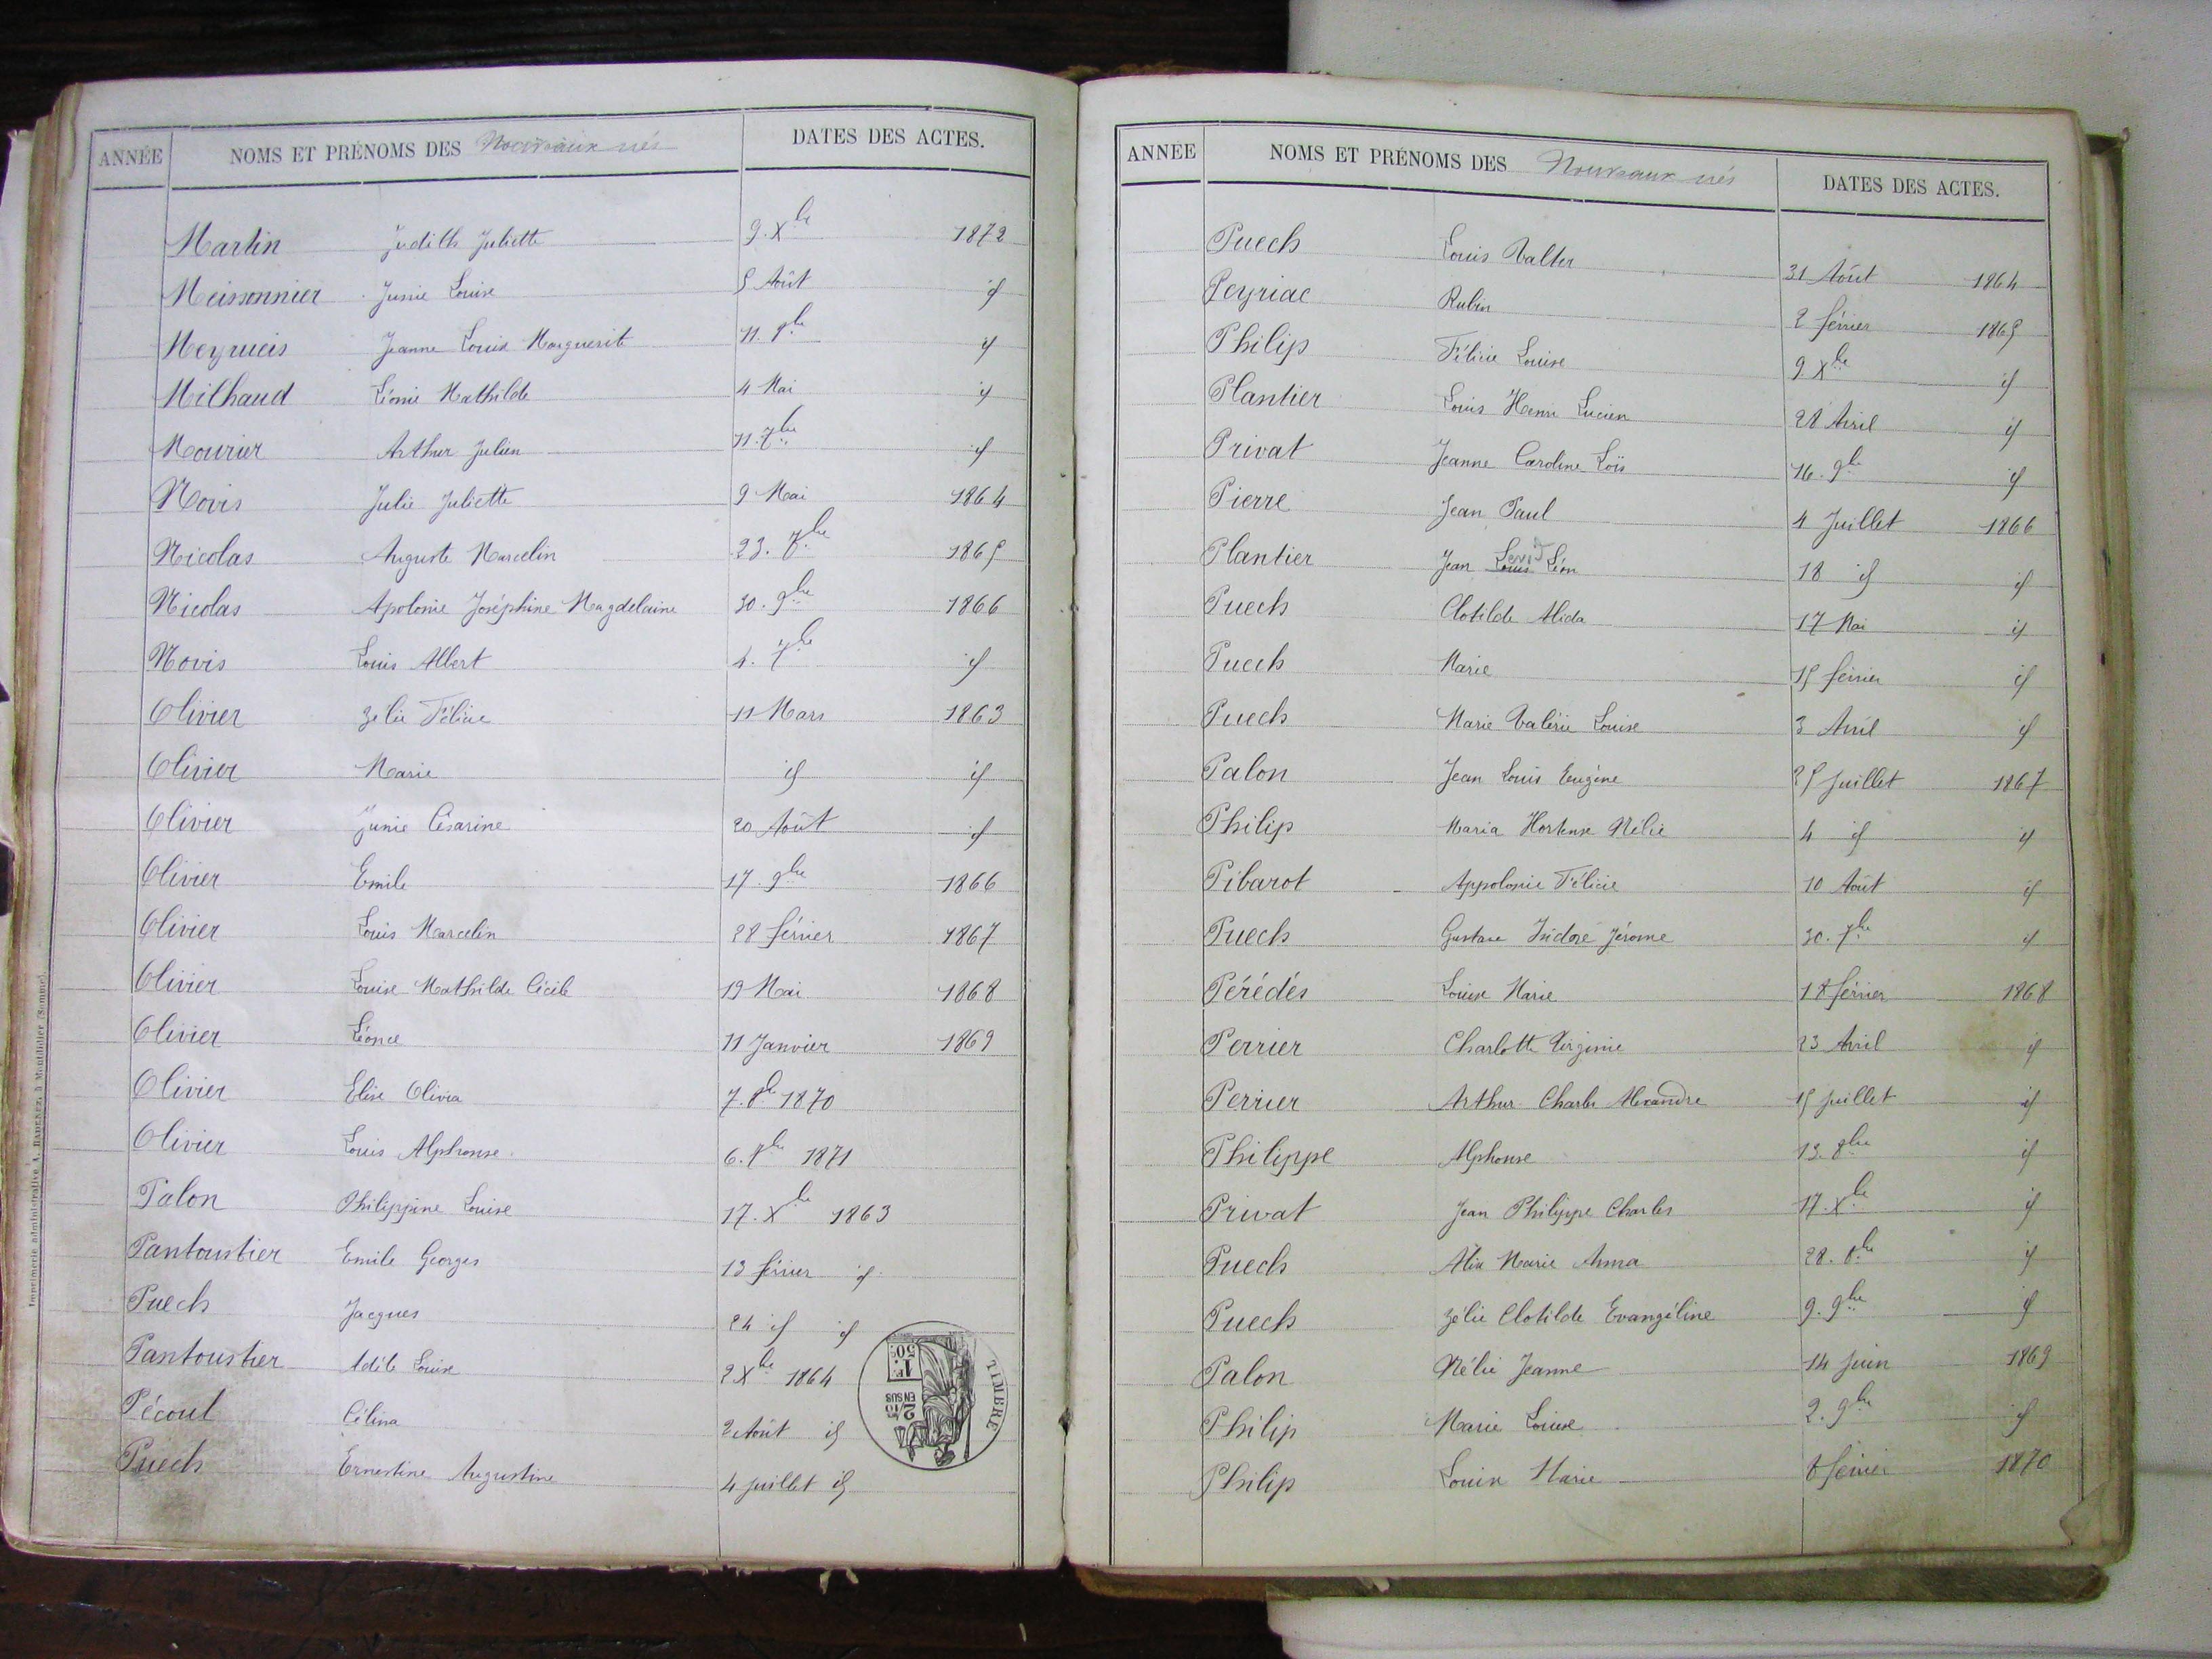 ANNÉE NOMS ET PRÉNOMS DES Nouveaux nés DATES DES ACTES.
Martin Judith Juliette 9. Xbre 1872
Meissonnier Junie Louise 5 Août id
Meyrueis Jeanne Louise Marguerite 11. 9bre id
Milhaud Léonie Mathilde 4 Mai id
Mourier Arthur Julien 11. 7bre id
Novis Julie Juliette 9 Mai 1864
Nicolas Auguste Marcelin 23. 7bre 1865
Nicolas Apolonie Joséphine Magdelaine 30. 9bre 1866
Novis Louis Albert 4. 7bre id
Olivier Zélie Félicie 11 Mars 1863
Olivier Marie id id
Olivier Junie Césarine 20 Août id
Olivier Emile 17. 9bre 1866
Olivier Louis Marcelin 28 février 1867
Olivier Louise Mathilde Cécile 19 Mai 1868
Olivier Léonce 11 Janvier 1869
Olivier Elise Olivia 7. 8bre 1870
Olivier Louis Alphonse 6. 8bre 1871
Palon Philippine Louise 17. Xbre 1863
Pantoustier Emile Georges 13 février id
Puech Jacques 24 id id
Pantoustier Adèle Louise 2 Xbre 1864
Pécoul Célina 2 Août id
Puech Ernestine Augustine 4 juillet id
TIMBRE
1F. 50c.
2/10 EN SUS
Imprimerie administrative A. RADENEZ, à Montdidier (Somme).
ANNÉE NOMS ET PRÉNOMS DES Nouveaux nés DATES DES ACTES.
Puech Louis Valter 31 Août 1864
Peyriac Rubin 2 février 1865
Philip Félicie Louise 9 Xbre id
Plantier Louis Henri Lucien 28 Avril id
Privat Jeanne Caroline Loïs 16. 9bre id
Pierre Jean Paul 4 Juillet 1866
Plantier Jean Louis Léon 18 id id
Puech Clotilde Alida 17 Mai id
Puech Marie 15 février id
Puech Marie Valérie Louise 3 Avril id
Palon Jean Louis Eugène 25 Juillet 1867
Philip Maria Hortense Nélie 4 id id
Pibarot Appolonie Félicie 10 Août id
Puech Gustave Isidore Jérome 30. 7bre id
Pérédés Louise Marie 18 février 1868
Perrier Charlotte Virginie 23 Avril id
Perrier Arthur Charles Alexandre 15 juillet id
Philippe Alphonse 13. 8bre id
Privat Jean Philippe Charles 17. Xbre id
Puech Alix Marie Anna 28. 8bre id
Puech Zélie Clotilde Evangéline 9. 9bre id
Palon Nélie Jeanne 14 Juin 1869
Philip Marie Louise 2. 9bre id
Philip Louise Marie 8 février 1870